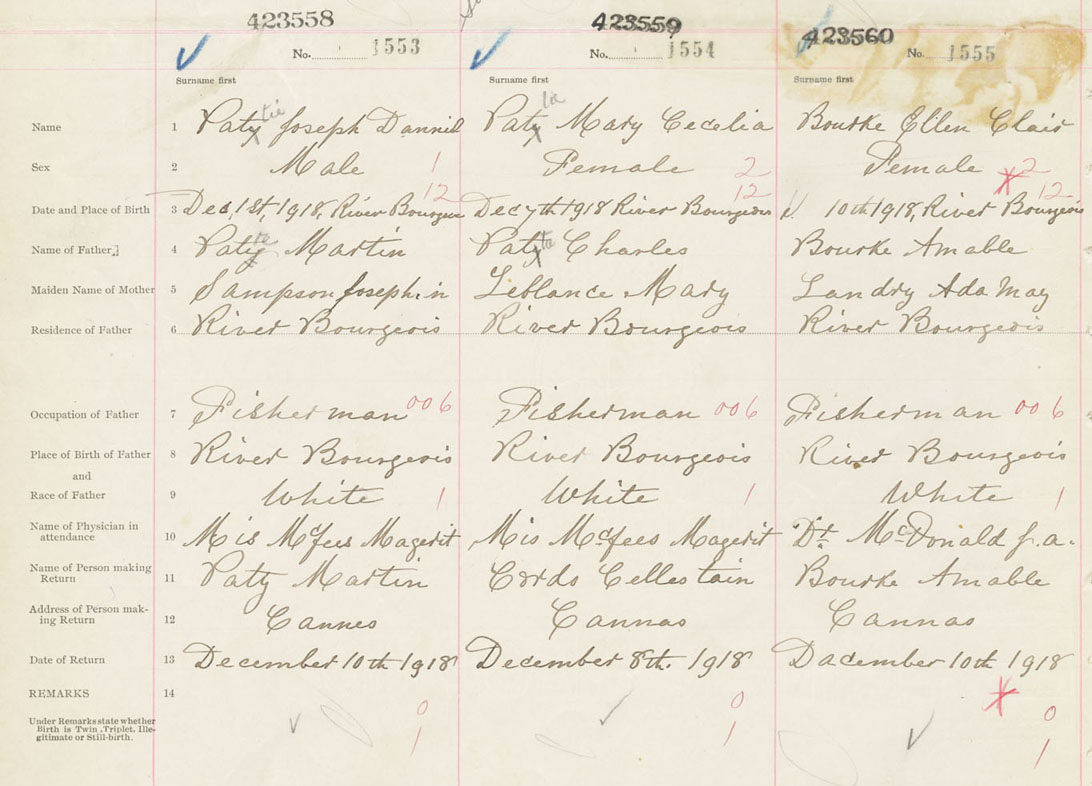 423558 423559 423560
No. 1553 No. 1554 No. 1555
Surname first Surname first Surname first
Name 1 Paty tie Joseph Danniel Paty ta Mary Cecelia Bourke Ellen Clair
Sex 2 Male 1 Female 2 Female 2
12 12 12
Date and Place of Birth 3 Dec, 1st, 1918, River Bourgeois Dec 7th 1918 River Bourgeois 10th 1918, River Bourgeois
Name of Father 4 Paty Martin Paty Charles Bourke Amable
Maiden Name of Mother 5 Sampson Josephin Leblance Mary Landry Ada May
Residence of Father 6 River Bourgeois River Bourgeois River Bourgeois
Occupation of Father 7 Fisherman 006 Fisherman 006 Fisherman 006
Place of Birth of Father 8 River Bourgeois River Bourgeois River Bourgeois
and
Race of Father 9 White 1 White 1 White 1
Name of Physician in
attendance 10 Mis McFees Magerit Mis McFees Magerit Dr. McDonald J. a.
Name of Person making
Return 11 Paty Martin Cordo Cellestain Bourke Amable
Address of Person mak-
ing Return 12 Cannes Cannas Cannas
Date of Return 13 December 10th 1918 December 8th. 1918 Dacember 10th 1918
REMARKS 14
Under Remarks state whether
Birth is Twin, Triplet, Ille-
gitimate or Still-birth.
0 0 0
1 1 1